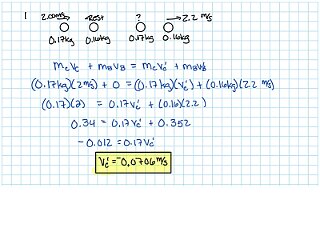 1 2.00m/s Rest ? → 2.2 m/s
0.17kg 0.16kg 0.17kg 0.16kg
mcvc + mBvB = mcvc' + mBvB'
(0.17kg)(2m/s) + 0 = (0.17kg)(vc') + (0.16kg)(2.2 m/s)
(0.17)(2) = 0.17vc' + (0.16)(2.2)
0.34 = 0.17vc' + 0.352
-0.012 = 0.17vc'
vc' = -0.0706 m/s